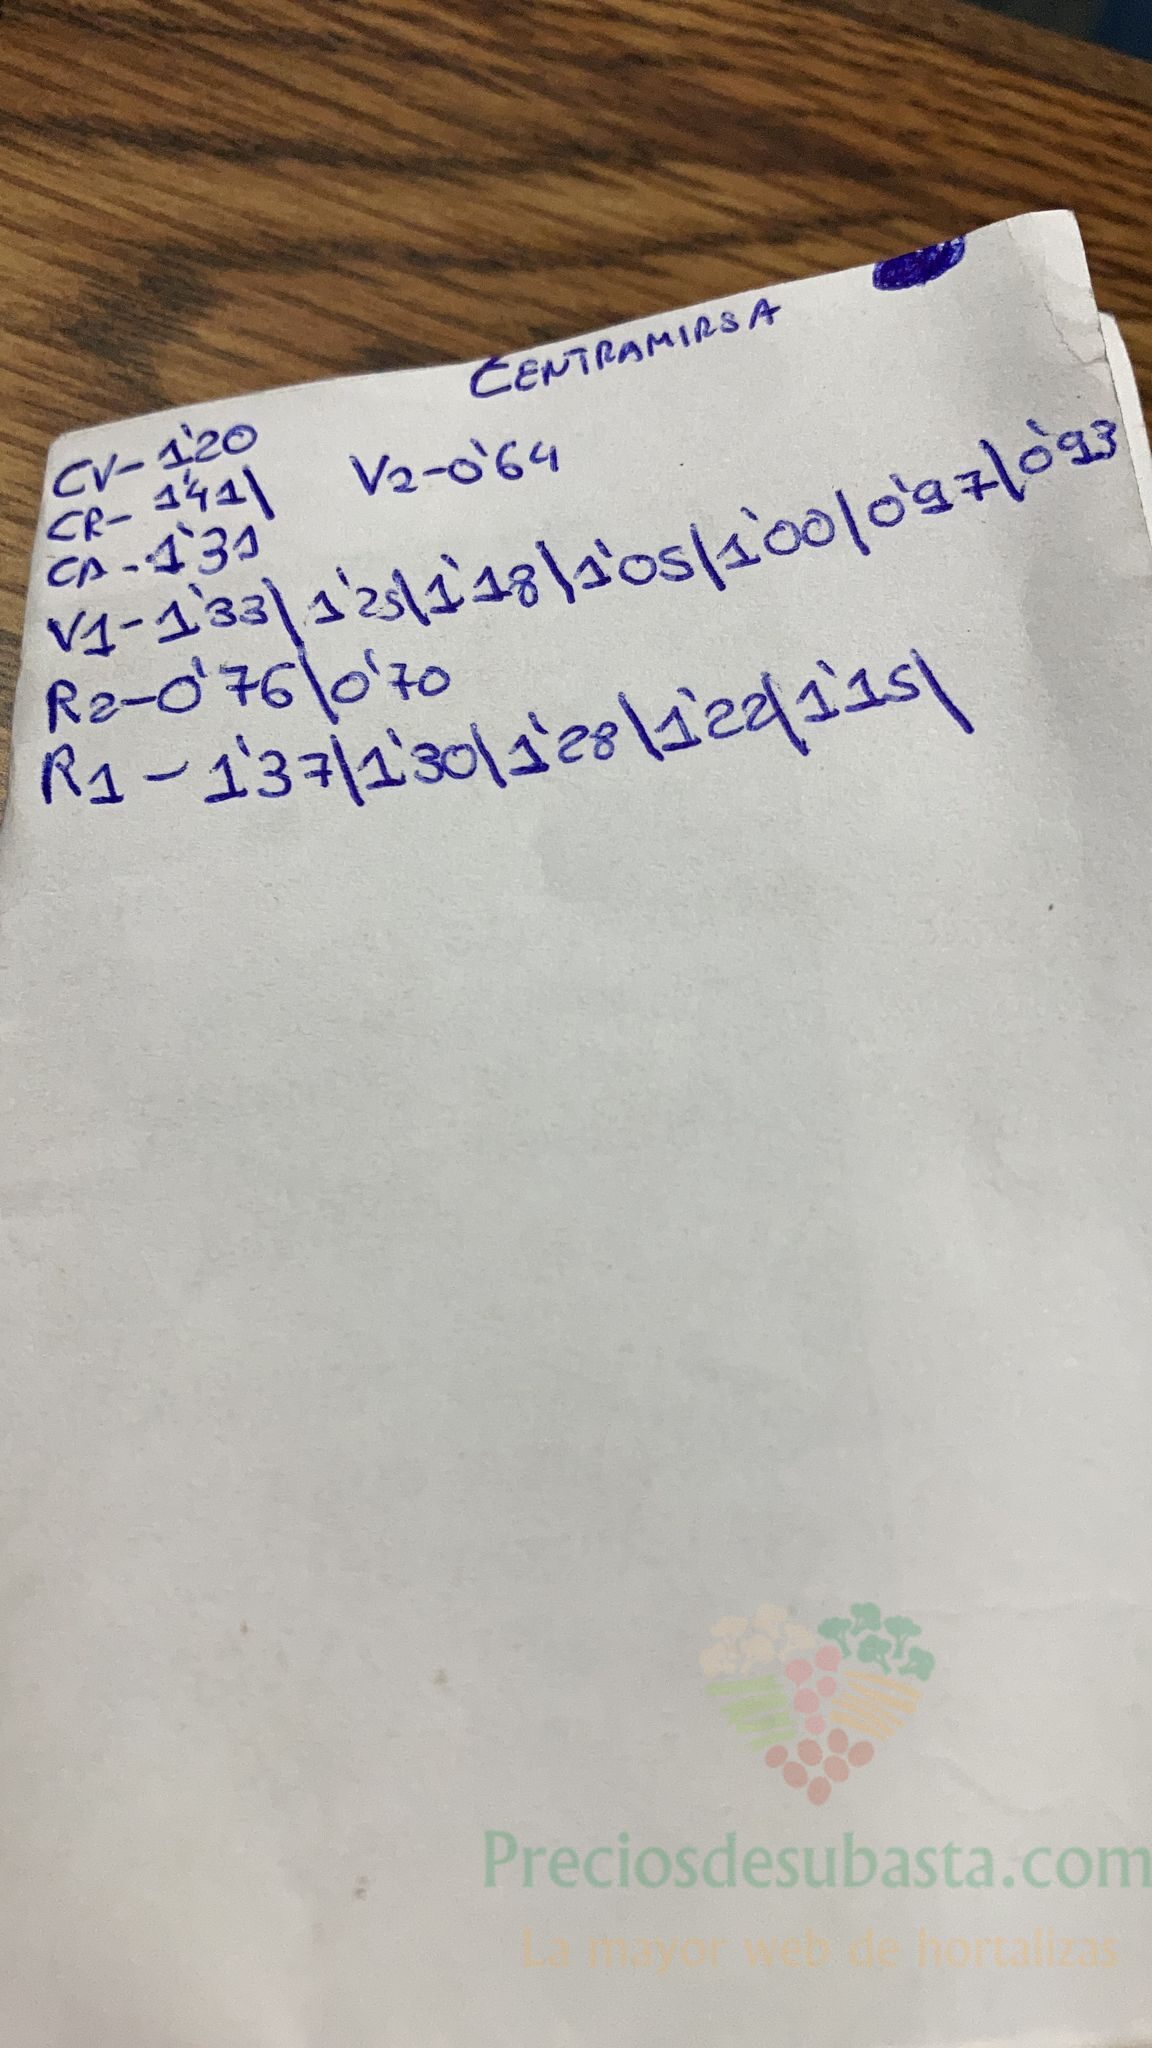 CENTRAMIRSA
CV-1'20
CR-1'41\ V2-0'64
CA-1'31
V1-1'33\1'25\1'18\1'05\1'00\0'97\0'93
R2-0'76\0'70
R1-1'37\1'30\1'28\1'22\1'15\
Preciosdesubasta.com
La mayor web de hortalizas